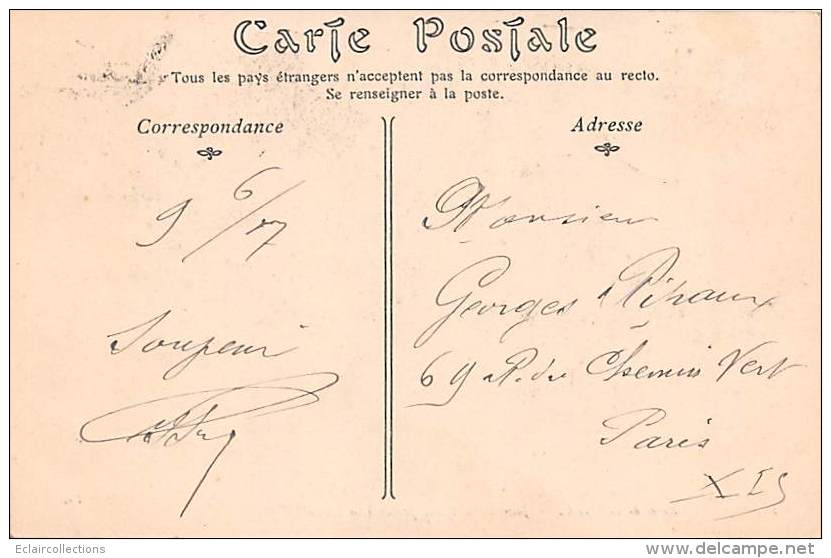 Carte Postale
Tous les pays étrangers n'acceptent pas la correspondance au recto.
Se renseigner à la poste.
Correspondance
Adresse
9 6/07
Monsieur
Georges
69 R. du Chemin Vert
Paris
XIe
Eclaircollections
delcampe.net